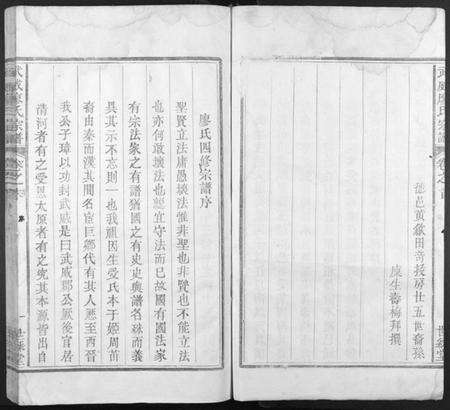 德邑黃歇田旁接房廿五世裔孫
庠生壽梅拜撰
武威廖氏宗譜
卷之首
世綵堂
廖氏四修宗譜序
聖賢立法庸愚壞法惟非聖也非賢也不能立法
也亦何敢壞法也恕宜守法而已故國有國法家
有宗法家之有譜猶國之有史史與譜名殊而義
其示不忘則一也我祖因生受氏本于姬周苗
裔由秦而漢其間名宦巨卿代有其人悪至西晉
我公子璋以功封武威是曰武威郡公厥後官居
清河者有之受恩太原者有之究其本源皆出自
武威廖氏宗譜
卷之首
序
一
世綵堂